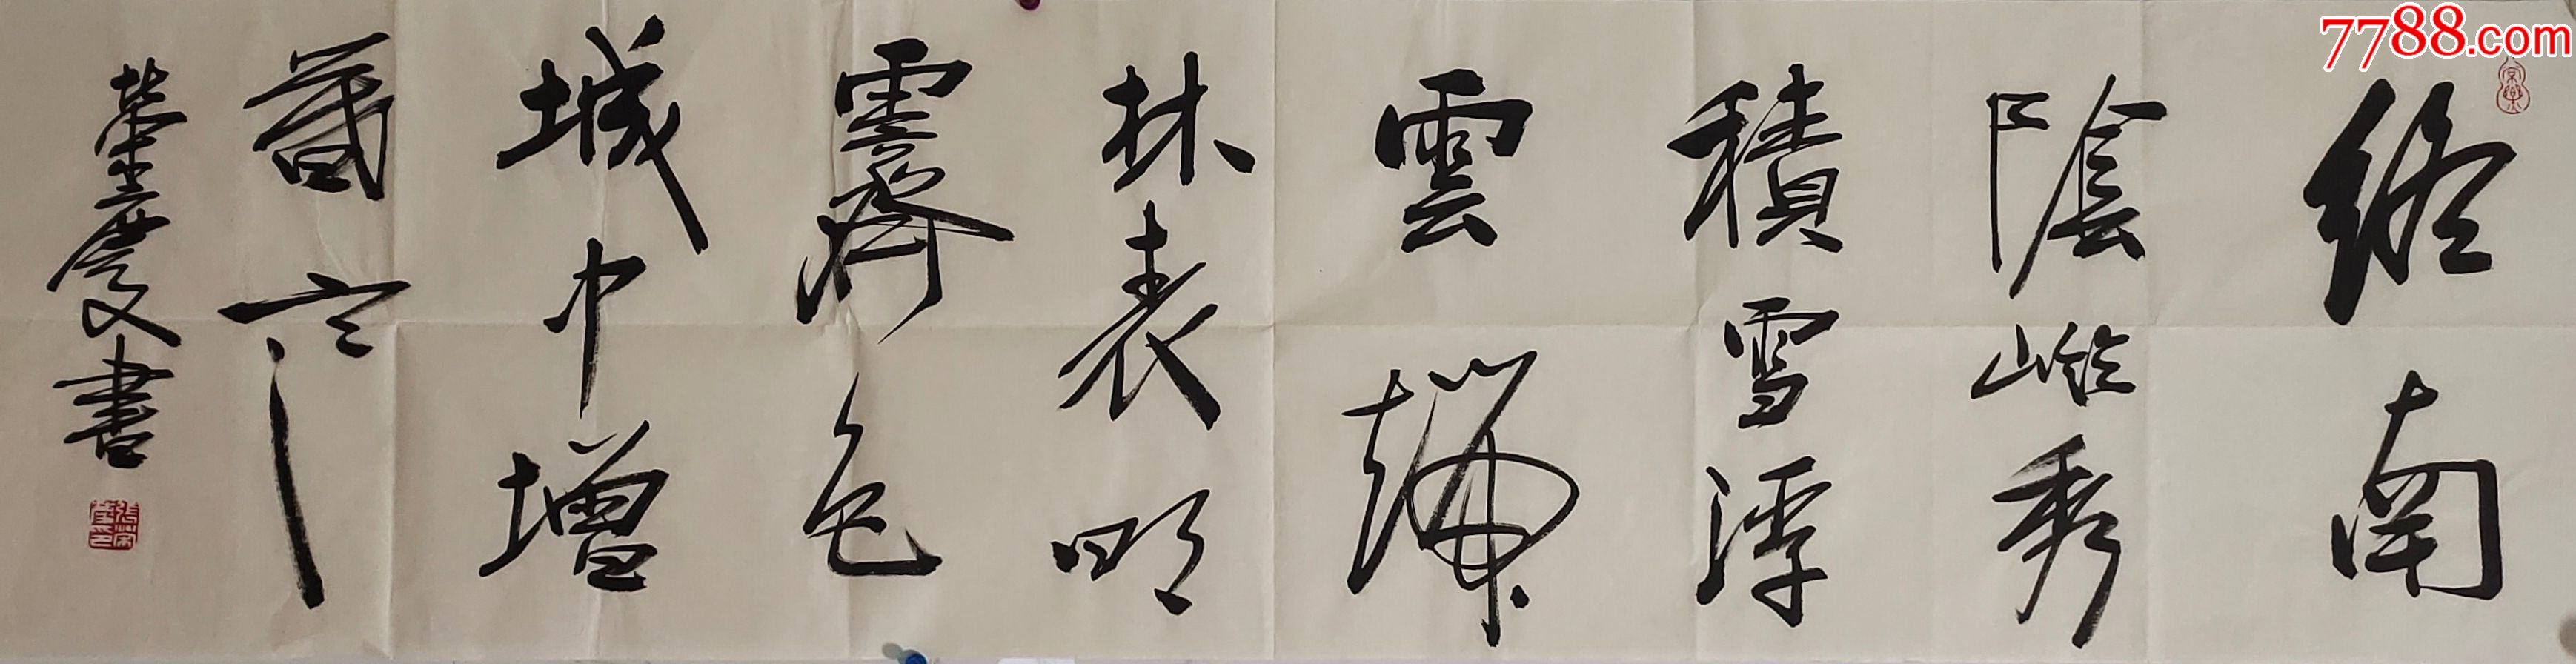 7788.com
終南
陰岭秀
積雪浮
雲端
林表明
霽色
城中增
暮寒
榮慶書